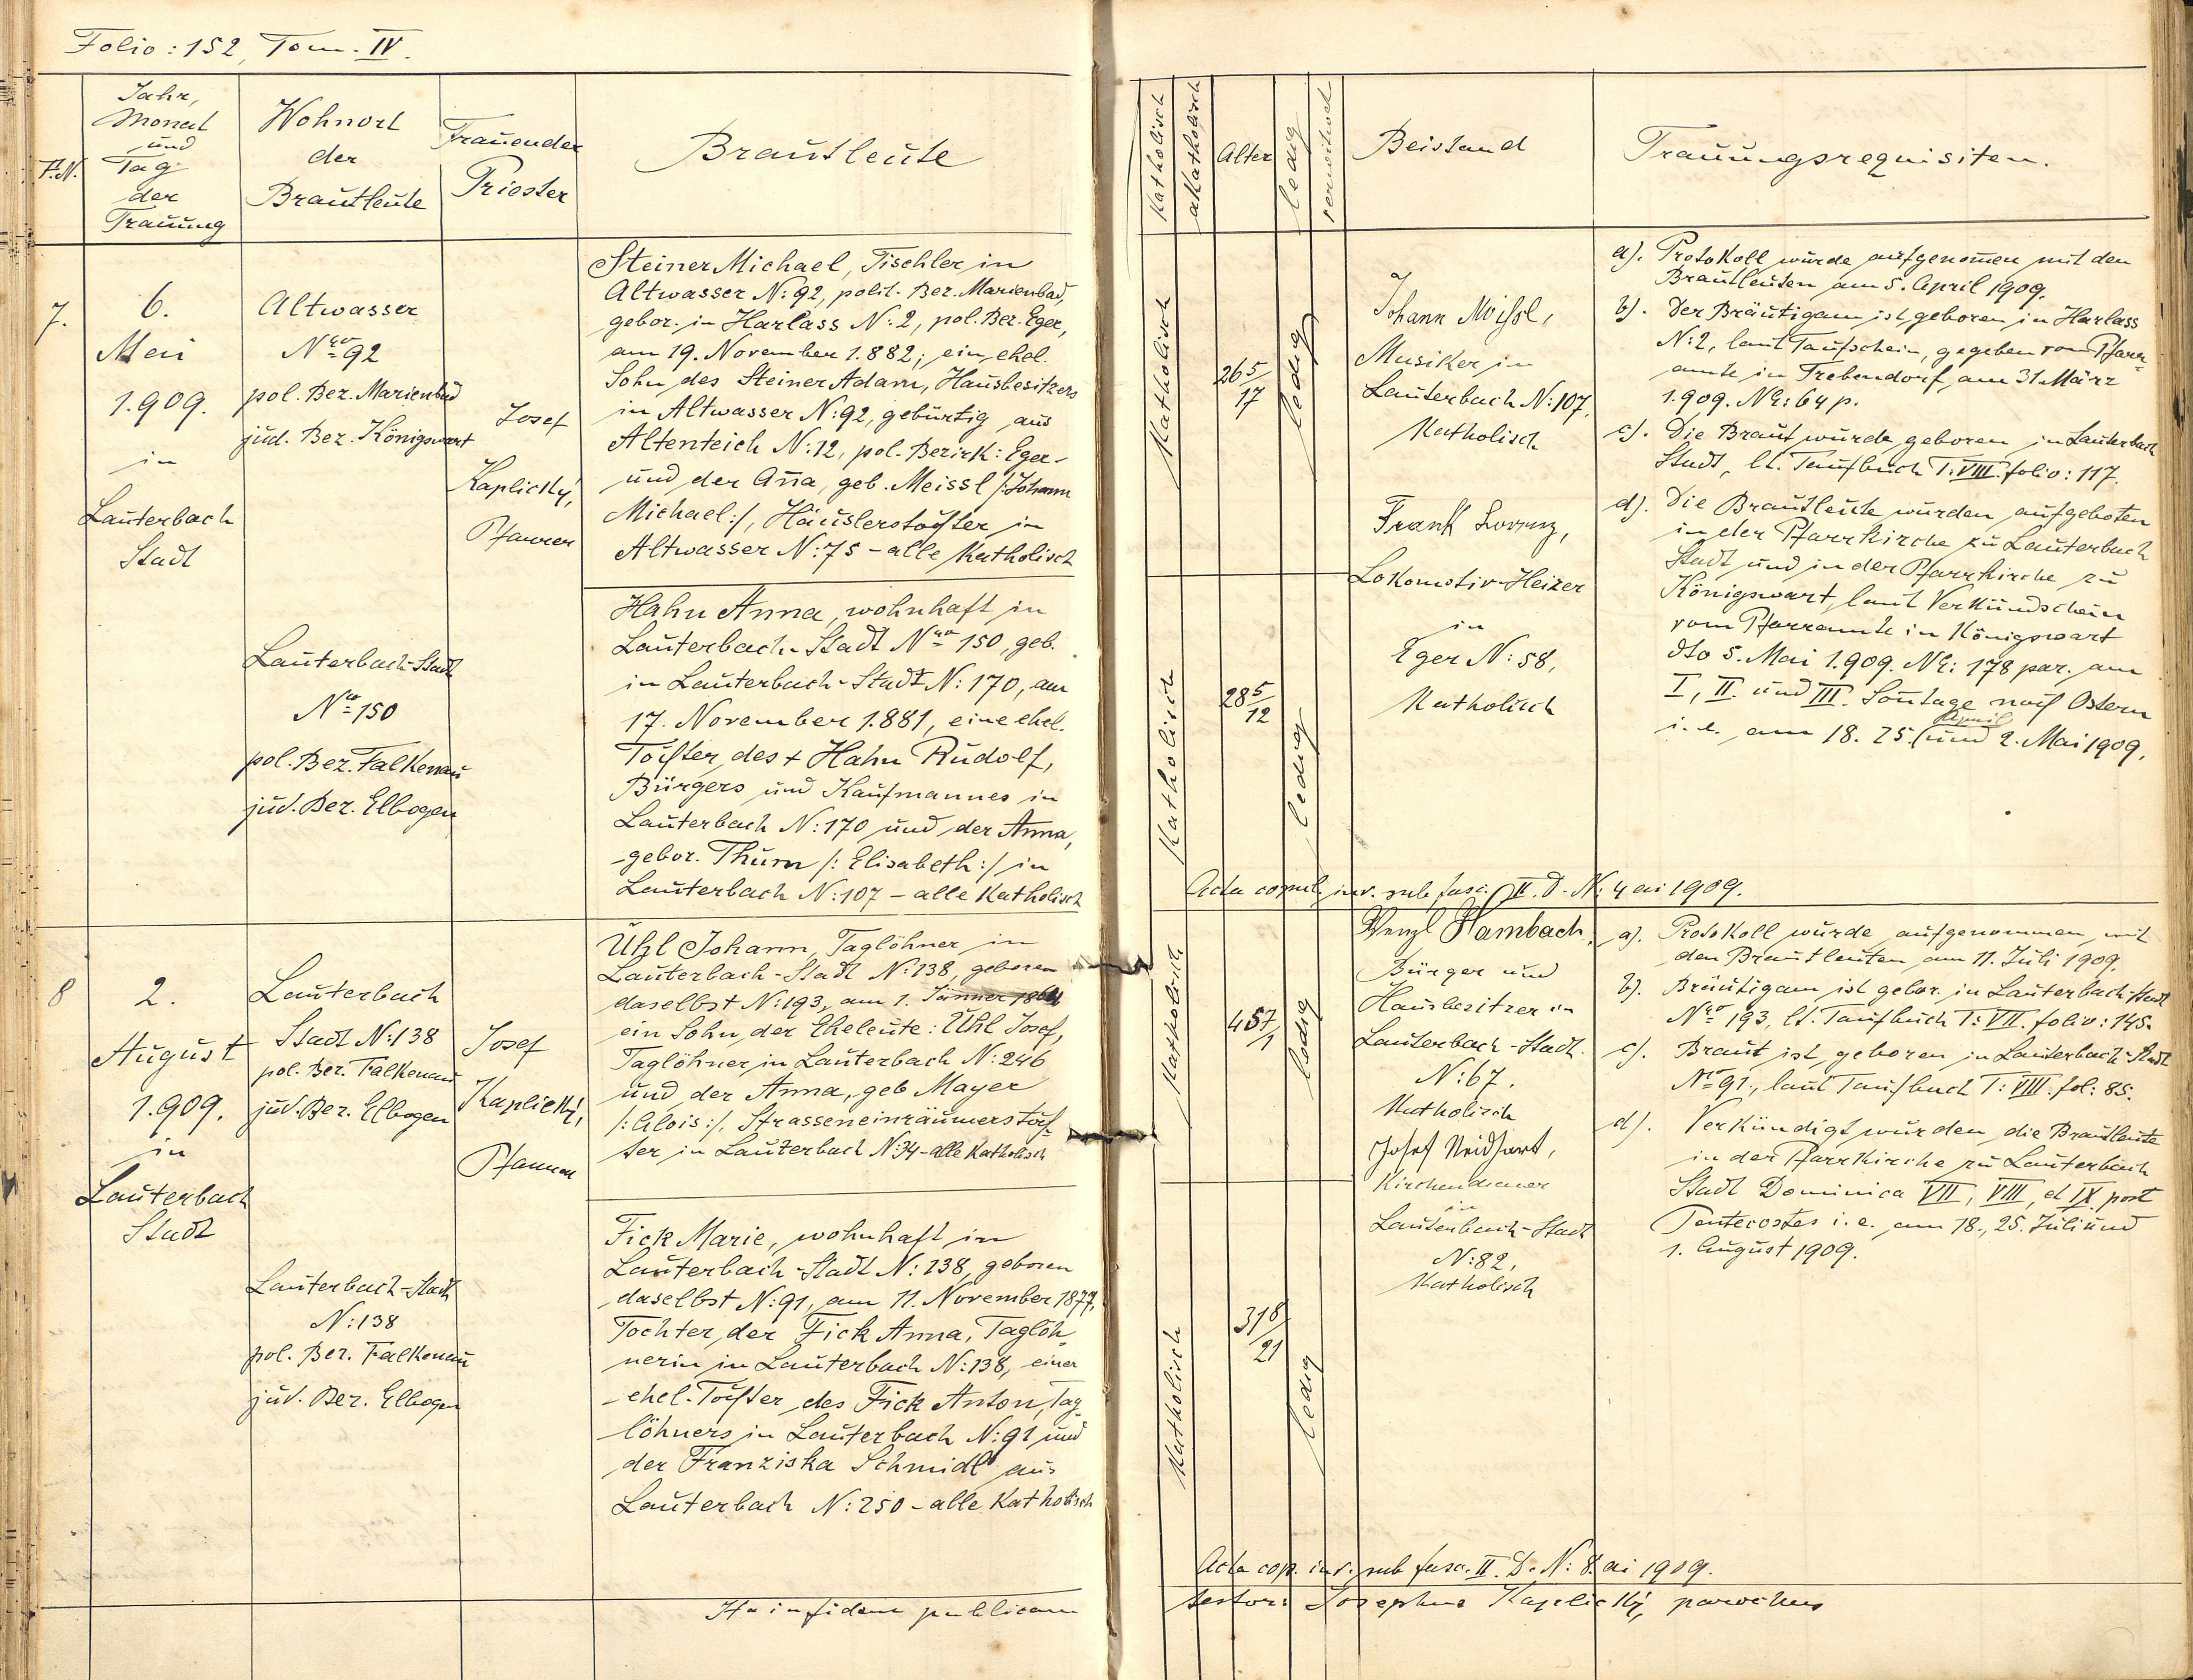 Folio: 152, Tom. IV.
F.N.
Jahr,
Monat
und
Tag
der
Trauung
Wohnort
der
Brautleute
Trauender
Priester
Brautleute
Katholisch
akatholisch
Alter
ledig
verwitwet
Beistand
Trauungsrequisiten.
7.
6.
Mai
1.909.
in
Lauterbach
Stadt
Altwasser
Nro 92
pol. Bez. Marienbad
jud. Bez. Königswart
Josef
Kaplický,
Pfarrer
Steiner Michael, Tischler in
Altwasser N: 92, polit. Bez. Marienbad,
gebor. in Harlass N: 2, pol. Bez. Eger,
am 19. November 1.882; ein ehel.
Sohn des Steiner Adam, Hausbesitzers
in Altwasser N: 92, gebürtig aus
Altenteich N: 12, pol. Bezirk: Eger
und der Anna, geb. Meissl /: Johann
Michael :/, Häuslerstochter in
Altwasser N: 75 - alle Katholisch
Lauterbach-Stadt
Nro 150
pol. Bez. Falkenau
jud. Bez. Elbogen
Hahn Anna, wohnhaft in
Lauterbach-Stadt Nro 150, geb.
in Lauterbach-Stadt N: 170, am
17. November 1.881, eine ehel.
Tochter des + Hahn Rudolf,
Bürgers und Kaufmannes in
Lauterbach N: 170 und der Anna,
gebor. Thurn /: Elisabeth :/ in
Lauterbach N: 107 - alle Katholisch
Katholisch
26 5/17
ledig
Katholisch
28 5/12
ledig
Johann Meißl,
Musiker in
Lauterbach N: 107,
Katholisch
Frank Lorenz,
Lokomotiv-Heizer
in
Eger N: 58,
Katholisch
a). Protokoll wurde aufgenommen mit den
Brautleuten am 5. April 1909.
b). Der Bräutigam ist geboren in Harlass
N: 2, laut Taufschein, gegeben vom Pfarr-
amte in Trebendorf, am 31. März
1.909. NE: 64 p.
c). Die Braut wurde geboren in Lauterbach
Stadt, lt. Taufbuch T: VIII. folio: 117.
d). Die Brautleute wurden aufgeboten
in der Pfarrkirche zu Lauterbach
Stadt und in der Pfarrkirche zu
Königswart, laut Verkündschein
vom Pfarramte in Königswart
dto 5. Mai 1.909. NE: 178 par. am
I, II. und III. Sontage nach Ostern
i. e. am 18. 25. April und 2. Mai 1909.
Acta copul. inv. sub fasc. II. D. N: 4 ai 1909.
8
2.
August
1.909.
in
Lauterbach
Stadt
Lauterbach
Stadt N: 138
pol. Bez. Falkenau
jud. Bez. Elbogen
Josef
Kaplický,
Pfarrer
Uhl Johann, Taglöhner in
Lauterbach-Stadt N: 138, geboren
daselbst N: 193, am 1. Jänner 1864
ein Sohn der Eheleute: Uhl Josef,
Taglöhner in Lauterbach N: 246
und der Anna, geb Mayer
/: Alois :/, Strasseneinräumerstoch-
ter in Lauterbach N: 34 - alle Katholisch
Lauterbach-Stadt
N: 138
pol. Bez. Falkenau
jud. Bez. Elbogen
Fick Marie, wohnhaft in
Lauterbach-Stadt N: 138, geboren
daselbst N: 91, am 11. November 1877,
Tochter der Fick Anna, Taglöh-
nerin in Lauterbach N: 138, einer
ehel. Tochter des Fick Anton, Tag
löhners in Lauterbach N: 91 und
der Franziska Schmidt aus
Lauterbach N: 250 - alle Katholisch
Katholisch
45 7/1
ledig
Katholisch
31 8/21
ledig
Wenzl Hambach,
Bürger und
Hausbesitzer in
Lauterbach-Stadt
N: 67.
Katholisch
Josef Neidhart,
Kirchendiener
in
Lauterbach-Stadt
N: 82,
Katholisch
a). Protokoll wurde aufgenommen mit
den Brautleuten am 11. Juli 1909.
b). Bräutigam ist gebor. in Lauterbach-Stadt
Nro 193, lt. Taufbuch T: VII. folio: 145.
c). Braut ist geboren in Lauterbach-Stadt
Nro 91, laut Taufbuch T: VIII. fol: 85.
d). Verkündigt wurden die Brautleute
in der Pfarrkirche zu Lauterbach
Stadt Dominica VII, VIII, et IX post
Pentecostes i. e. am 18., 25. Juli und
1. August 1909.
Acta cop. inv. sub fasc. II. D. N: 8. ai 1909.
Ita in fidem publicam
testor: Josephus Kaplický, parochus